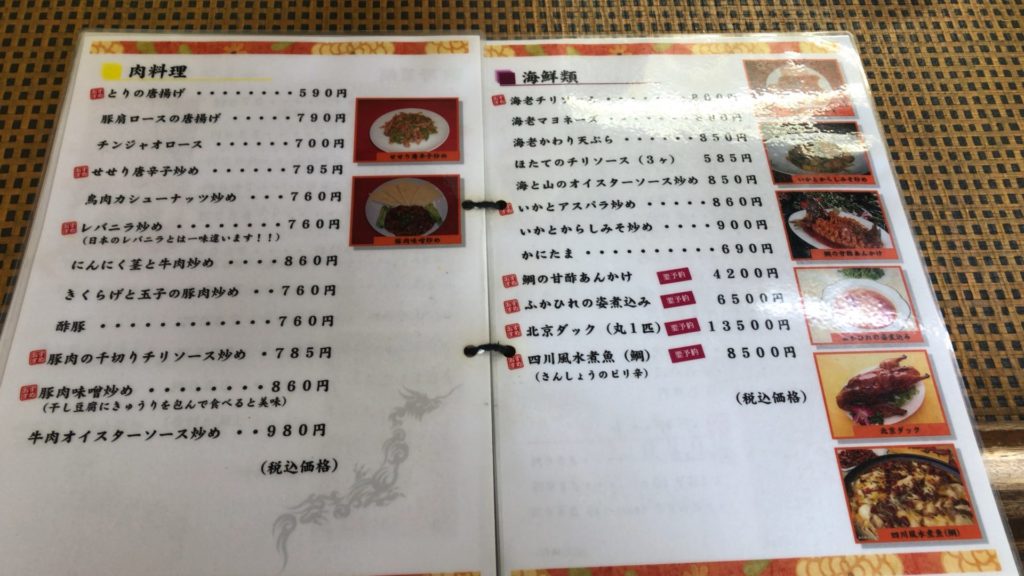 肉料理
とりの唐揚げ ・・・・・・・・590円
豚肩ロースの唐揚げ ・・・・・790円
チンジャオロース ・・・・・・700円
せせり唐辛子炒め ・・・・・・795円
鳥肉カシューナッツ炒め ・・・760円
レバニラ炒め ・・・・・・・・760円
(日本のレバニラとは一味違います!!)
にんにく茎と牛肉炒め ・・・・860円
きくらげと玉子の豚肉炒め ・・760円
酢豚 ・・・・・・・・・・・・760円
豚肉の千切りチリソース炒め ・785円
豚肉味噌炒め ・・・・・・・・860円
(干し豆腐にきゅうりを包んで食べると美味)
牛肉オイスターソース炒め ・・980円
(税込価格)
せせり唐辛子炒め
豚肉味噌炒め
海鮮類
海老チリソース
海老マヨネーズ
海老かわり天ぷら ・・・・・・850円
ほたてのチリソース(3ヶ) 585円
海と山のオイスターソース炒め 850円
いかとアスパラ炒め ・・・・・860円
いかとからしみそ炒め ・・・・900円
かにたま ・・・・・・・・・・690円
鯛の甘酢あんかけ 要予約 4200円
ふかひれの姿煮込み 要予約 6500円
北京ダック(丸1匹) 要予約 13500円
四川風水煮魚(鯛) 要予約 8500円
(さんしょうのピリ辛)
(税込価格)
いかとからしみそ炒め
鯛の甘酢あんかけ
ふかひれの姿煮込み
北京ダック
四川風水煮魚(鯛)